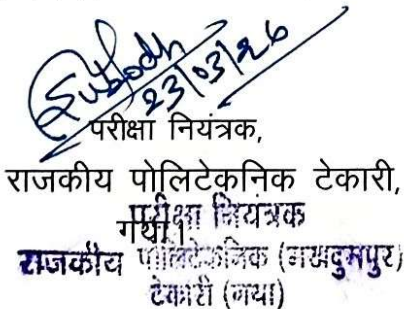 Subodh
23/03/26
परीक्षा नियंत्रक,
राजकीय पोलिटेकनिक टेकारी,
गया।
परीक्षा नियंत्रक
राजकीय पोलिटेकनिक (मखदुमपुर)
टेकारी (गया)